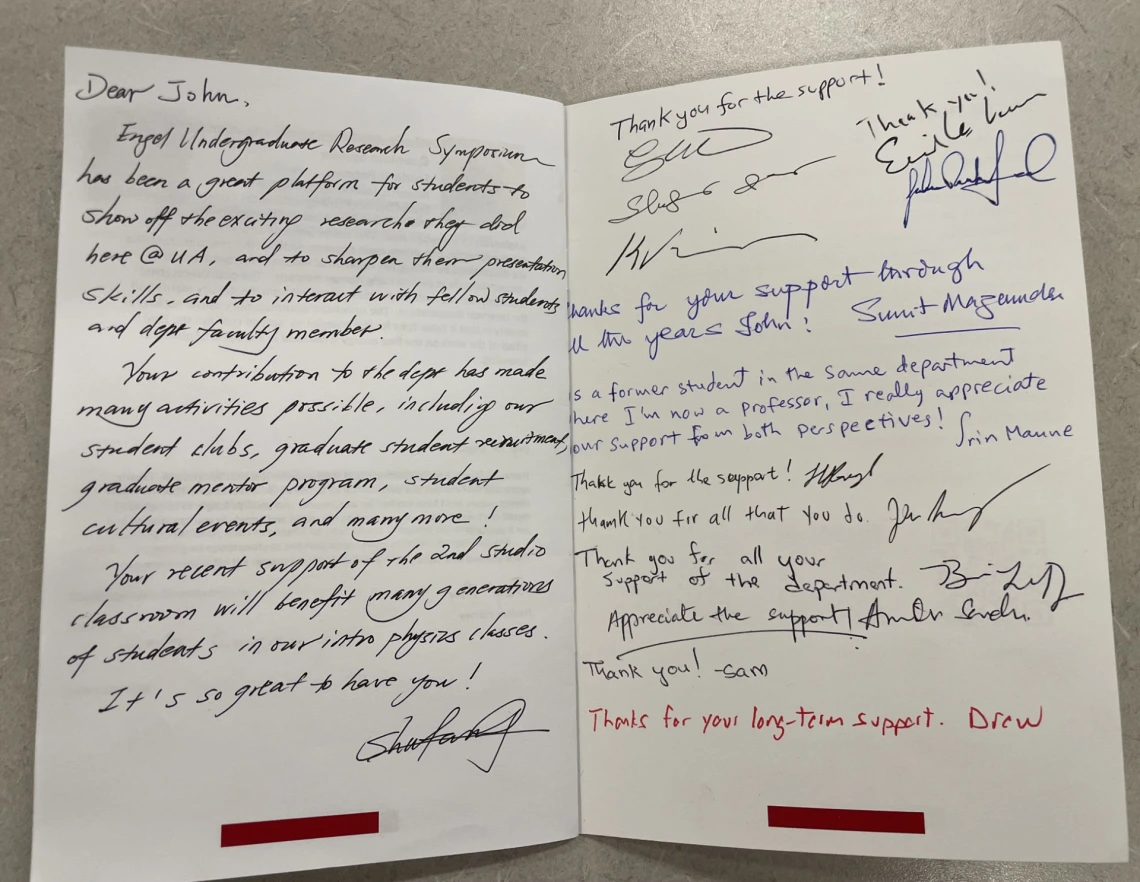 Dear John,
Engel Undergraduate Research Symposium
has been a great platform for students to
show off the exciting researche they did
here @ UA, and to sharpen them presentation
skills, and to interact with fellow students
and dept faculty member.
Your contribution to the dept has made
many activities possible, includig our
student clubs, graduate student recruitment,
graduate mentor program, student
cultural events, and many more!
Your recent support of the 2nd studio
classroom will benefit many generations
of students in our intro physics classes.
It's so great to have you!
Shufang
Thank you for the support!
Thank you!
hanks for your support through
ll the years John!
Sumit Mazumdar
s a former student in the same department
here I'm now a professor, I really appreciate
our support from both perspectives! Srin Manne
Thank you for the support!
thank you for all that you do.
Thank you for all your
support of the department.
Appreciate the support!
Thank you! -Sam
Thanks for your long-term support. Drew